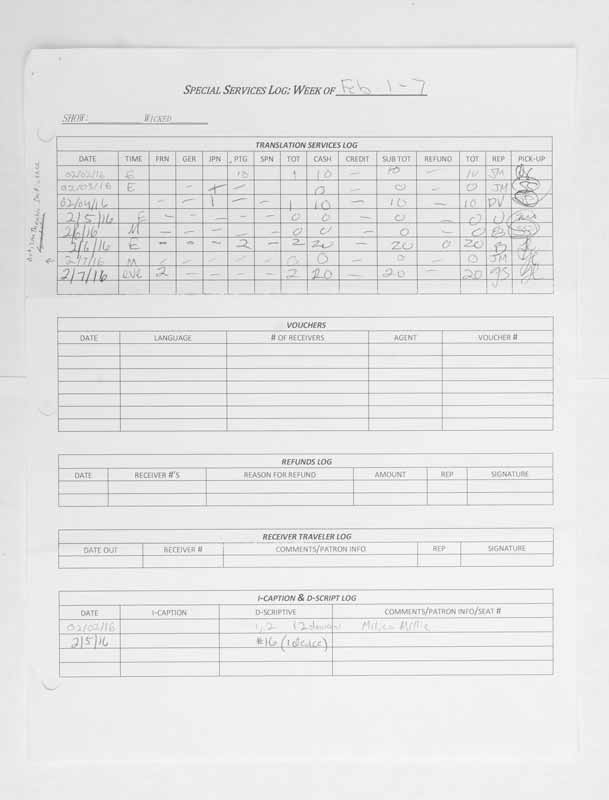 SPECIAL SERVICES LOG: WEEK OF Feb 1-7
SHOW: WICKED
TRANSLATION SERVICES LOG
DATE TIME FRN GER JPN PTG SPN TOT CASH CREDIT SUB TOT REFUND TOT REP PICK-UP
02/02/16 E 10 1 10 — 10 — 10 JM
02/03/16 E — — 0 — 0 — 0 JM
02/04/16 — — 1 — — 1 10 — 10 — 10 DV
2/5/16 E — — — — — 0 0 — 0 — 0
2/6/16 M — — — — — 0 0 — 0 — 0
2/6/16 E — — — 2 — 2 20 — 20 0 20 B
2/7/16 M — — — — — 0 0 — 0 — 0 JM
2/7/16 eve 2 — — — — 2 20 — 20 — 20 JS
VOUCHERS
DATE LANGUAGE # OF RECEIVERS AGENT VOUCHER #
REFUNDS LOG
DATE RECEIVER #'S REASON FOR REFUND AMOUNT REP SIGNATURE
RECEIVER TRAVELER LOG
DATE OUT RECEIVER # COMMENTS/PATRON INFO REP SIGNATURE
I-CAPTION & D-SCRIPT LOG
DATE I-CAPTION D-SCRIPTIVE COMMENTS/PATRON INFO/SEAT #
02/02/16 1, 2
2/5/16 #16 (1 device)